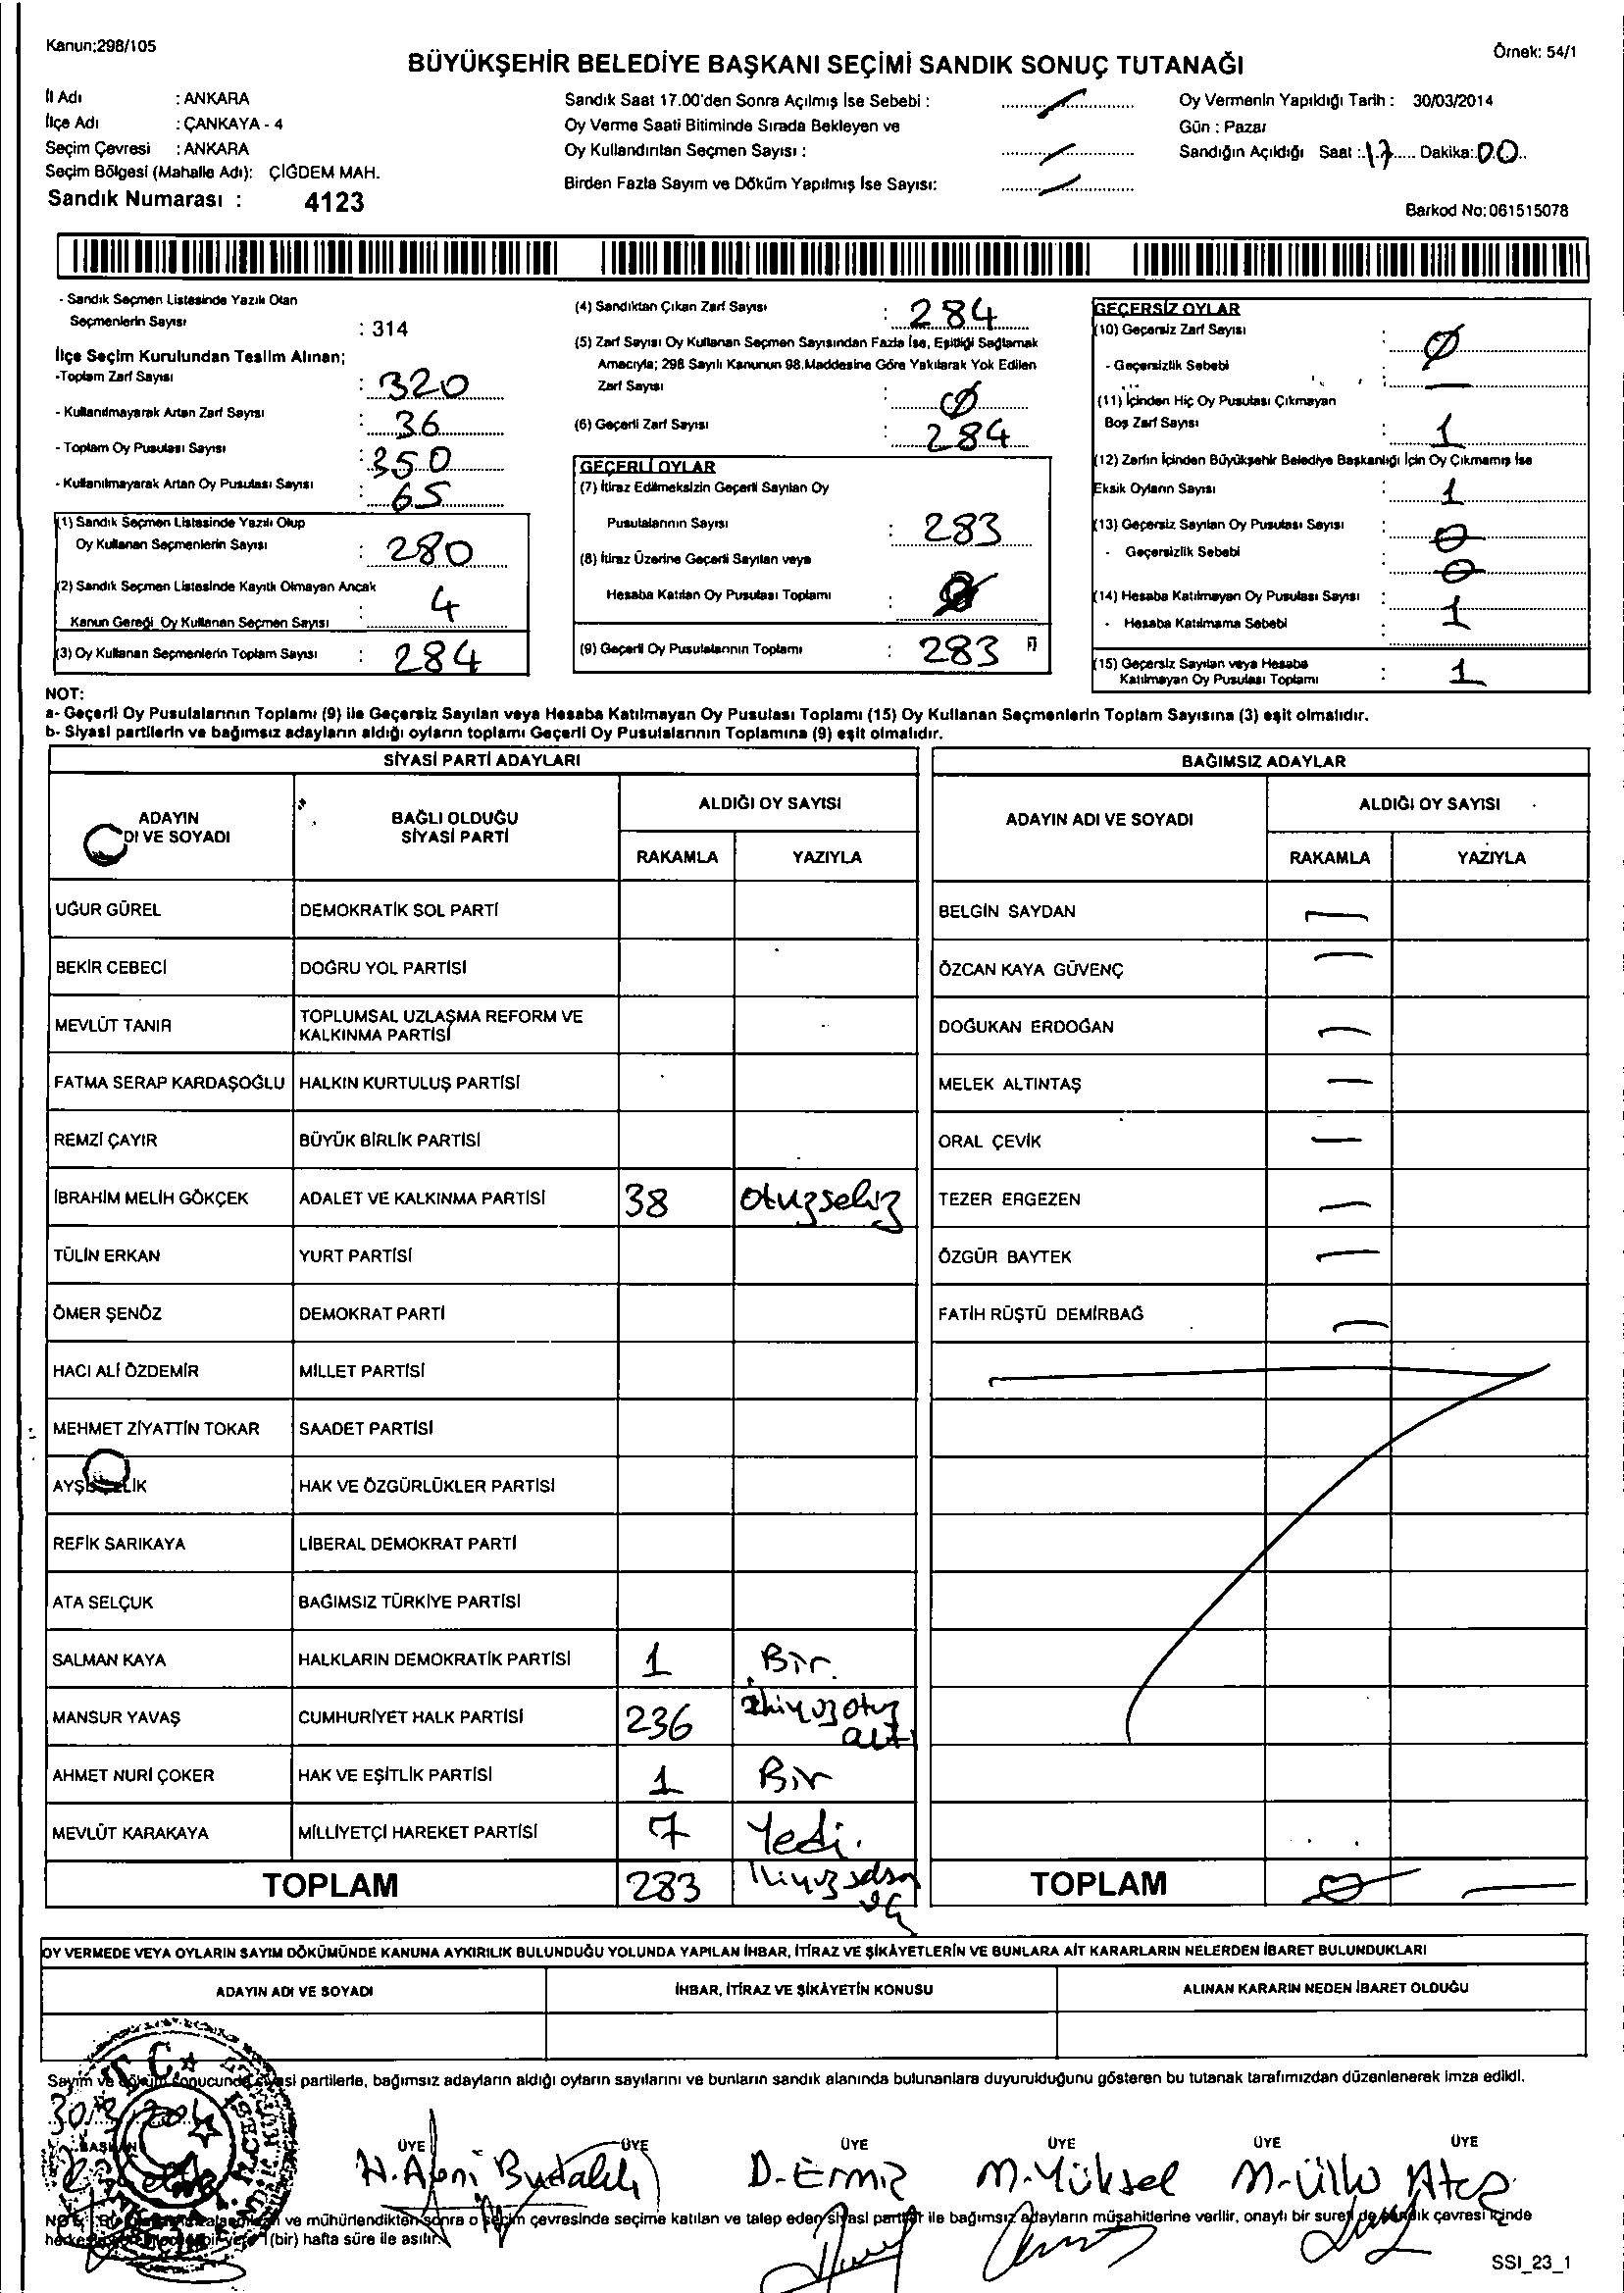 Kanun;298/105
Örnek: 54/1
BÜYÜKŞEHİR BELEDİYE BAŞKANI SEÇİMİ SANDIK SONUÇ TUTANAĞI
İl Adı : ANKARA
İlçe Adı : ÇANKAYA - 4
Seçim Çevresi : ANKARA
Seçim Bölgesi (Mahalle Adı): ÇİĞDEM MAH.
Sandık Numarası : 4123
Sandık Saat 17.00'den Sonra Açılmış İse Sebebi :
Oy Verme Saati Bitiminde Sırada Bekleyen ve
Oy Kullandırılan Seçmen Sayısı :
Birden Fazla Sayım ve Döküm Yapılmış İse Sayısı:
Oy Vermenin Yapıldığı Tarih : 30/03/2014
Gün : Pazar
Sandığın Açıldığı Saat : 17 Dakika: 00
Barkod No: 061515078
- Sandık Seçmen Listesinde Yazılı Olan
Seçmenlerin Sayısı : 314
İlçe Seçim Kurulundan Teslim Alınan;
-Toplam Zarf Sayısı : 320
- Kullanılmayarak Artan Zarf Sayısı : 36
- Toplam Oy Pusulası Sayısı : 350
- Kullanılmayarak Artan Oy Pusulası Sayısı : 65
(1) Sandık Seçmen Listesinde Yazılı Olup
Oy Kullanan Seçmenlerin Sayısı : 280
(2) Sandık Seçmen Listesinde Kayıtlı Olmayan Ancak
Kanun Gereği Oy Kullanan Seçmen Sayısı : 4
(3) Oy Kullanan Seçmenlerin Toplam Sayısı : 284
(4) Sandıktan Çıkan Zarf Sayısı : 284
(5) Zarf Sayısı Oy Kullanan Seçmen Sayısından Fazla İse, Eşitliği Sağlamak
Amacıyla; 298 Sayılı Kanunun 98.Maddesine Göre Yakılarak Yok Edilen
Zarf Sayısı : Ø
(6) Geçerli Zarf Sayısı : 284
GEÇERLİ OYLAR
(7) İtiraz Edilmeksizin Geçerli Sayılan Oy
Pusulalarının Sayısı : 283
(8) İtiraz Üzerine Geçerli Sayılan veya
Hesaba Katılan Oy Pusulası Toplamı : Ø
(9) Geçerli Oy Pusulalarının Toplamı : 283
GEÇERSİZ OYLAR
(10) Geçersiz Zarf Sayısı : Ø
- Geçersizlik Sebebi : —
(11) İçinden Hiç Oy Pusulası Çıkmayan
Boş Zarf Sayısı : 1
(12) Zarfın İçinden Büyükşehir Belediye Başkanlığı İçin Oy Çıkmamış İse
Eksik Oyların Sayısı : 1
(13) Geçersiz Sayılan Oy Pusulası Sayısı : 0
- Geçersizlik Sebebi : 0
(14) Hesaba Katılmayan Oy Pusulası Sayısı : 1
- Hesaba Katılmama Sebebi :
(15) Geçersiz Sayılan veya Hesaba
Katılmayan Oy Pusulası Toplamı : 1
NOT:
a- Geçerli Oy Pusulalarının Toplamı (9) ile Geçersiz Sayılan veya Hesaba Katılmayan Oy Pusulası Toplamı (15) Oy Kullanan Seçmenlerin Toplam Sayısına (3) eşit olmalıdır.
b- Siyasi partilerin ve bağımsız adayların aldığı oyların toplamı Geçerli Oy Pusulalarının Toplamına (9) eşit olmalıdır.
SİYASİ PARTİ ADAYLARI
ADAYIN
DI VE SOYADI
BAĞLI OLDUĞU
SİYASİ PARTİ
ALDIĞI OY SAYISI
RAKAMLA YAZIYLA
UĞUR GÜREL DEMOKRATİK SOL PARTİ
BEKİR CEBECİ DOĞRU YOL PARTİSİ
MEVLÜT TANIR TOPLUMSAL UZLAŞMA REFORM VE
KALKINMA PARTİSİ
FATMA SERAP KARDAŞOĞLU HALKIN KURTULUŞ PARTİSİ
REMZİ ÇAYIR BÜYÜK BİRLİK PARTİSİ
İBRAHİM MELİH GÖKÇEK ADALET VE KALKINMA PARTİSİ 38 otuzsekiz
TÜLİN ERKAN YURT PARTİSİ
ÖMER ŞENÖZ DEMOKRAT PARTİ
HACI ALİ ÖZDEMİR MİLLET PARTİSİ
MEHMET ZİYATTİN TOKAR SAADET PARTİSİ
HAK VE ÖZGÜRLÜKLER PARTİSİ
REFİK SARIKAYA LİBERAL DEMOKRAT PARTİ
ATA SELÇUK BAĞIMSIZ TÜRKİYE PARTİSİ
SALMAN KAYA HALKLARIN DEMOKRATİK PARTİSİ 1 Bir.
MANSUR YAVAŞ CUMHURİYET HALK PARTİSİ 236 ikiyüzotuz
altı
AHMET NURİ ÇOKER HAK VE EŞİTLİK PARTİSİ 1 Bir
MEVLÜT KARAKAYA MİLLİYETÇİ HAREKET PARTİSİ 7 Yedi.
TOPLAM 283 ikiyüzseksen
üç
BAĞIMSIZ ADAYLAR
ADAYIN ADI VE SOYADI
ALDIĞI OY SAYISI
RAKAMLA YAZIYLA
BELGİN SAYDAN —
ÖZCAN KAYA GÜVENÇ —
DOĞUKAN ERDOĞAN —
MELEK ALTINTAŞ —
ORAL ÇEVİK —
TEZER ERGEZEN —
ÖZGÜR BAYTEK —
FATİH RÜŞTÜ DEMİRBAĞ —
TOPLAM 0 —
OY VERMEDE VEYA OYLARIN SAYIM DÖKÜMÜNDE KANUNA AYKIRILIK BULUNDUĞU YOLUNDA YAPILAN İHBAR, İTİRAZ VE ŞİKÂYETLERİN VE BUNLARA AİT KARARLARIN NELERDEN İBARET BULUNDUKLARI
ADAYIN ADI VE SOYADI İHBAR, İTİRAZ VE ŞİKÂYETİN KONUSU ALINAN KARARIN NEDEN İBARET OLDUĞU
Sayım ve döküm sonucunda siyasi partilerle, bağımsız adayların aldığı oyların sayılarını ve bunların sandık alanında bulunanlara duyurulduğunu gösteren bu tutanak tarafımızdan düzenlenerek imza edildi.
T.C.
BAŞKAN ÜYE ÜYE ÜYE ÜYE ÜYE ÜYE
D. Ermiz M. Yüksel M. Ülkü Ateş
ve mühürlendikten sonra o seçim çevresinde seçime katılan ve talep eden siyasi partiler ile bağımsız adayların müşahitlerine verilir, onaylı bir sureti de sandık çevresi içinde
1 (bir) hafta süre ile asılır.
SSI_23_1